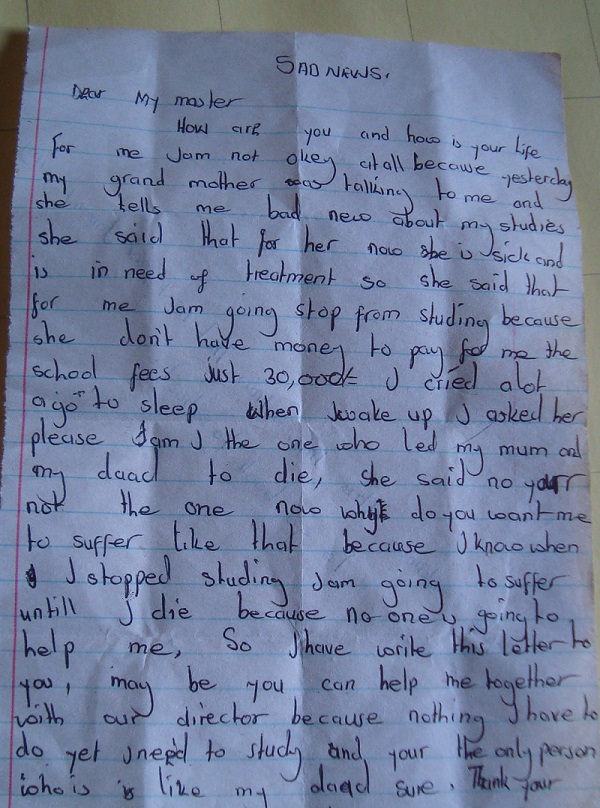 SAD NEWS.
Dear My master
How are you and how is your life
For me Jam not okey at all because yesterday
my grand mother was talking to me and
she tells me bad new about my studies
she said that for her now she is sick and
is in need of treatment so she said that
for me Jam going stop from studing because
she don't have money to pay for me the
school fees just 30,000/= J cried alot
ago to sleep When Jwake up J asked her
please Jam J the one who led my mum and
my daad to die, she said no your
not the one now why do you want me
to suffer like that because J know when
J stopped studing Jam going to suffer
untill J die because no one is going to
help me, So Jhave write this letter to
you, may be you can help me together
with our director because nothing J have to
do yet Jneed to study and your the only person
who is like my daad sure. Think your